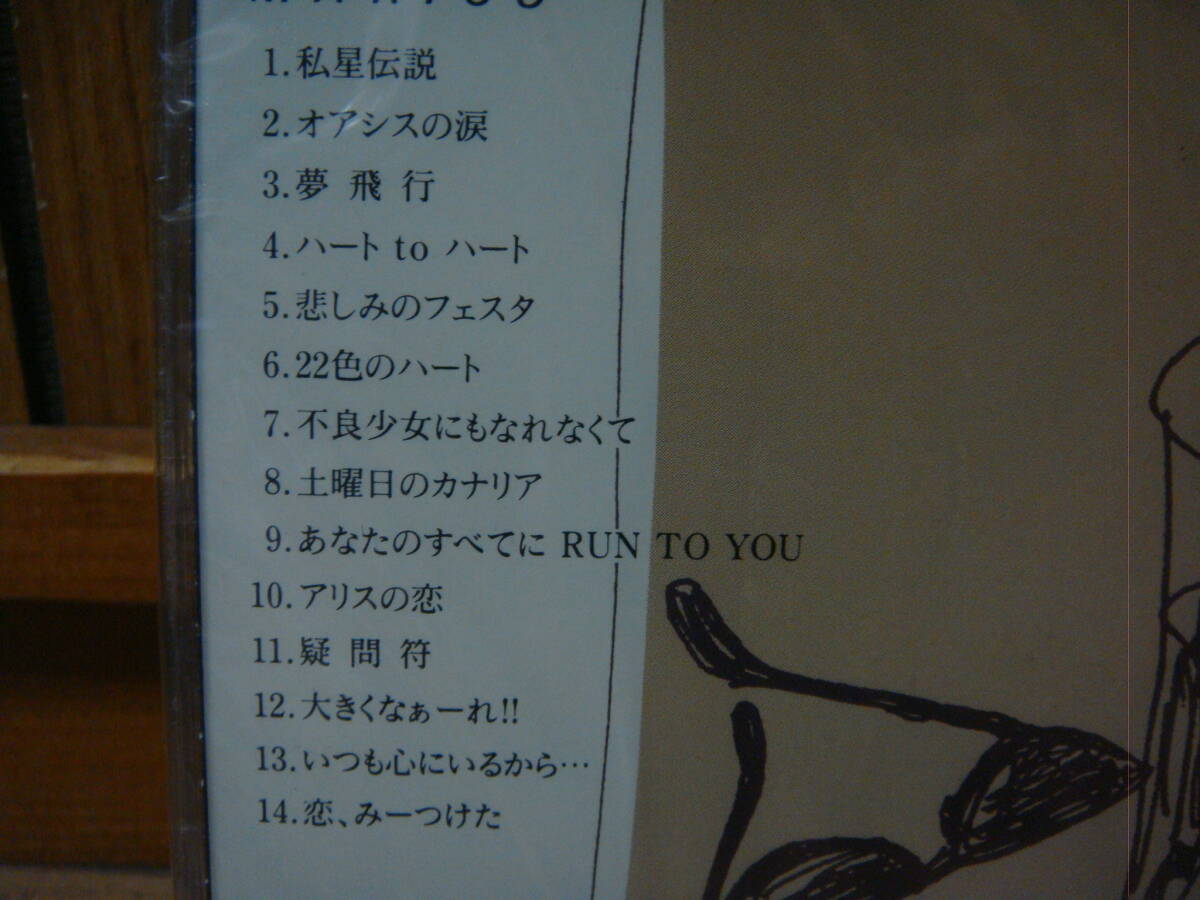 1.私星伝説
2.オアシスの涙
3.夢 飛 行
4.ハート to ハート
5.悲しみのフェスタ
6.22色のハート
7.不良少女にもなれなくて
8.土曜日のカナリア
9.あなたのすべてに RUN TO YOU
10.アリスの恋
11.疑 問 符
12.大きくなぁーれ!!
13.いつも心にいるから…
14.恋、みーつけた